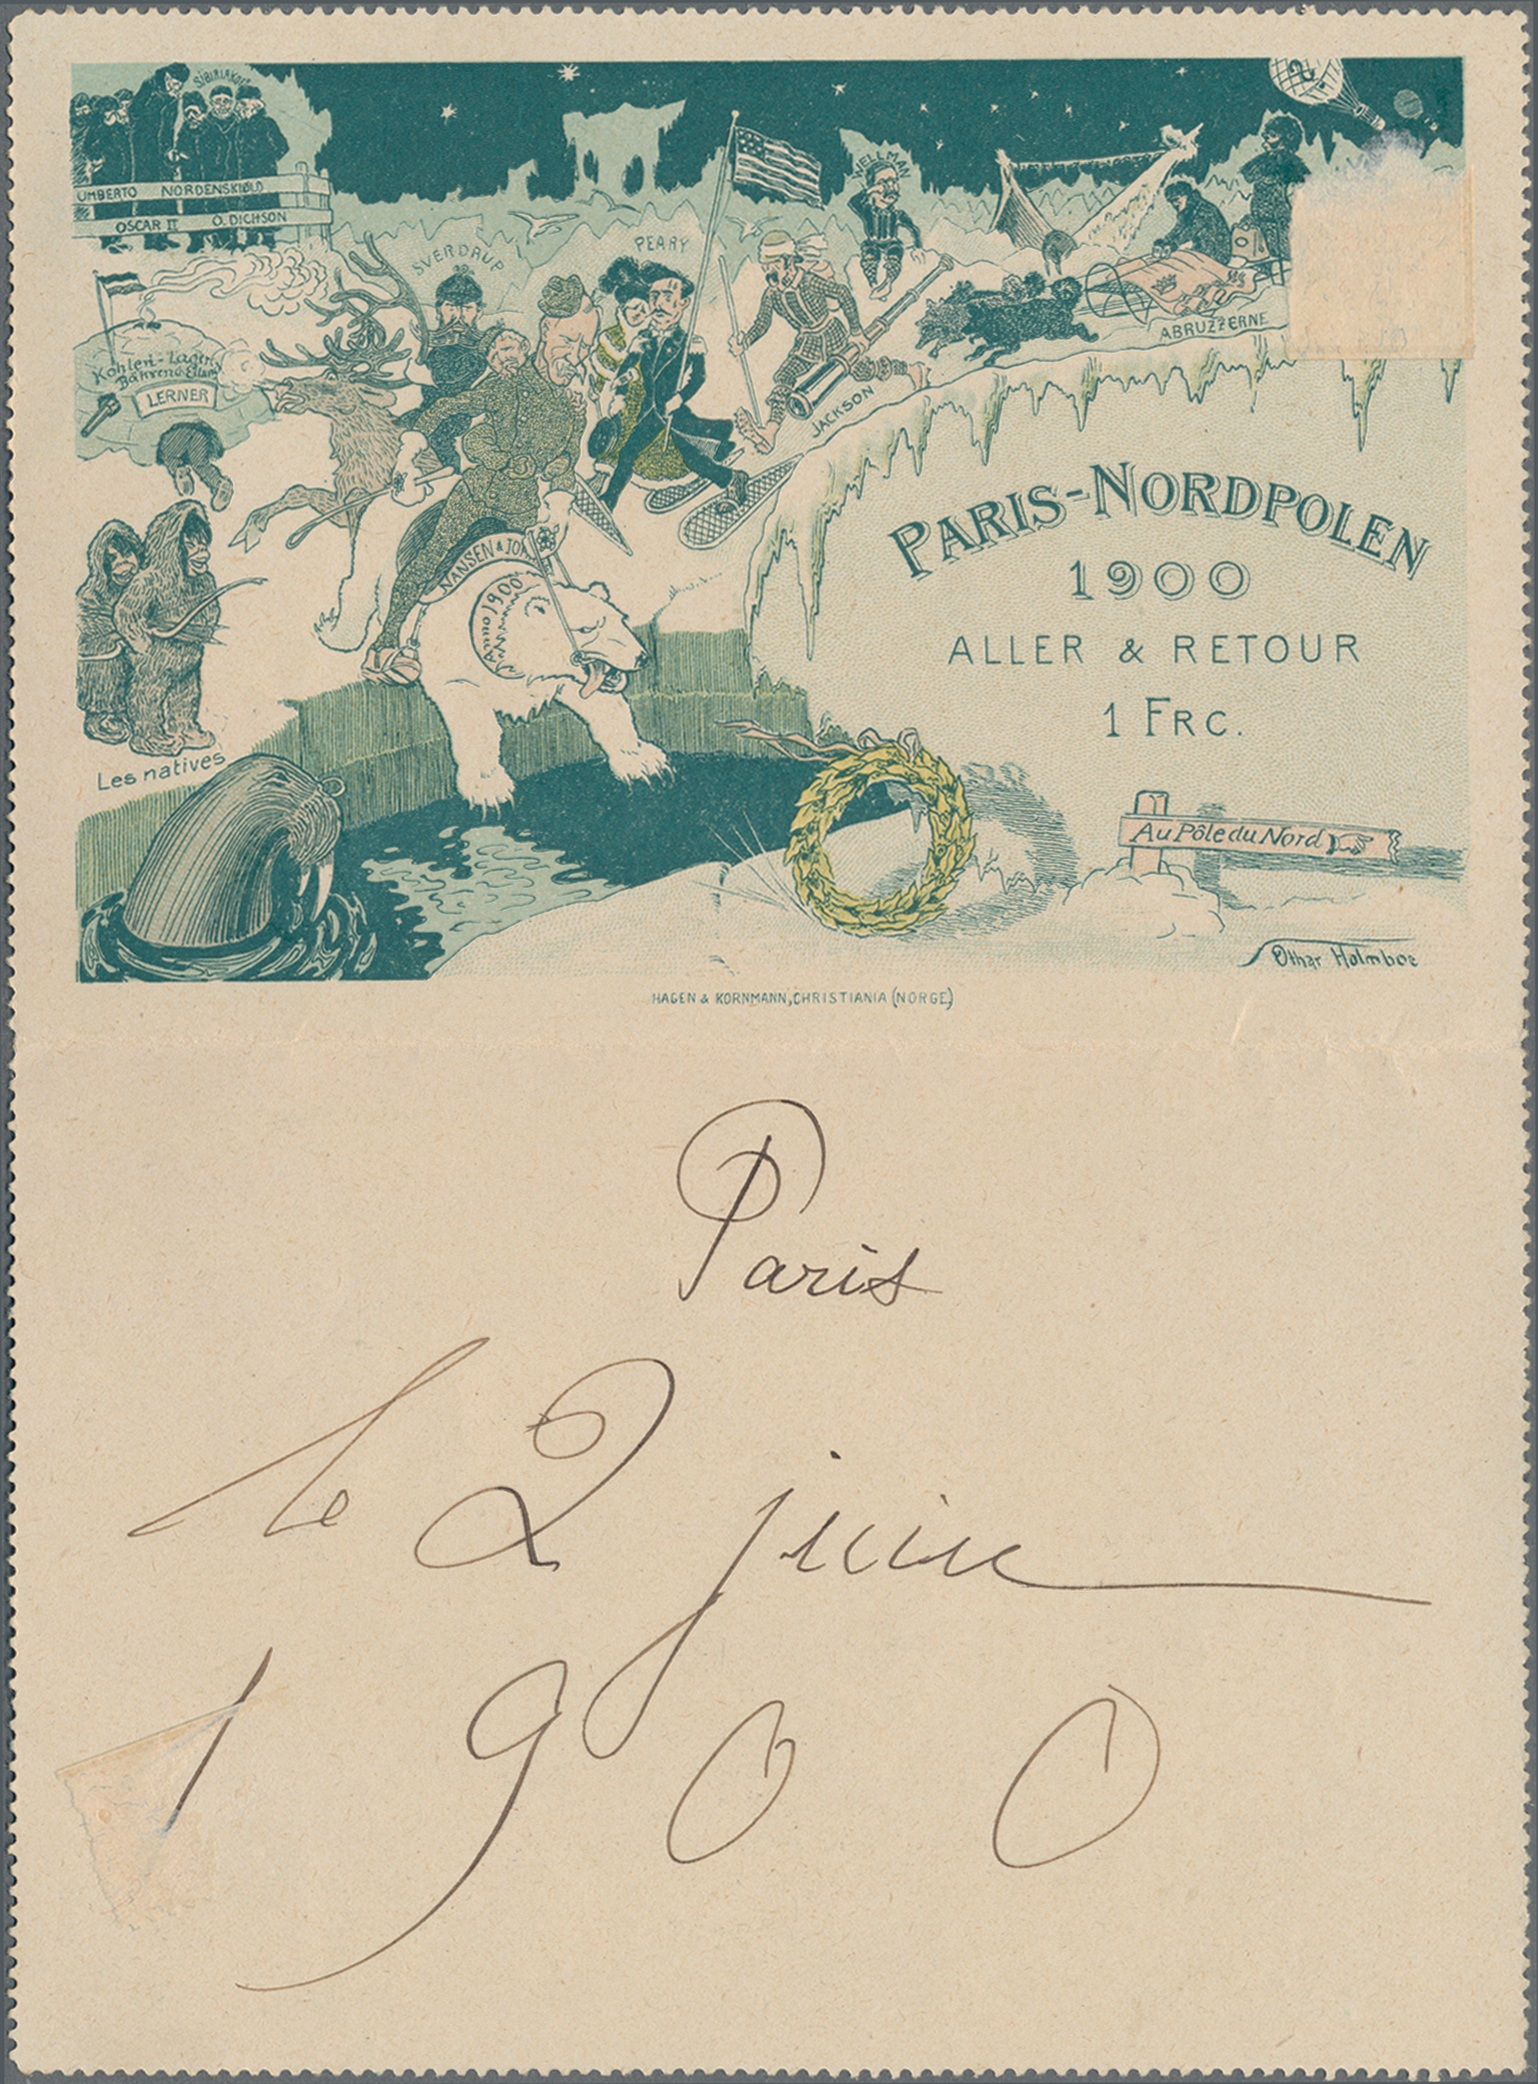 SIBIRIAKOFF
UMBERTO NORDENSKIØLD
OSCAR II O. DICHSON
SVERDRUP
PEARY
WELLMAN
JACKSON
ABRUZZERNE
Kohlen-Lager
LERNER
NANSEN & JOH
1900
Les natives
PARIS-NORDPOLEN
1900
ALLER & RETOUR
1 FRC.
Au Pôle du Nord
Othar Holmboe
HAGEN & KORNMANN, CHRISTIANIA (NORGE)
Paris
le 2 juin
1900